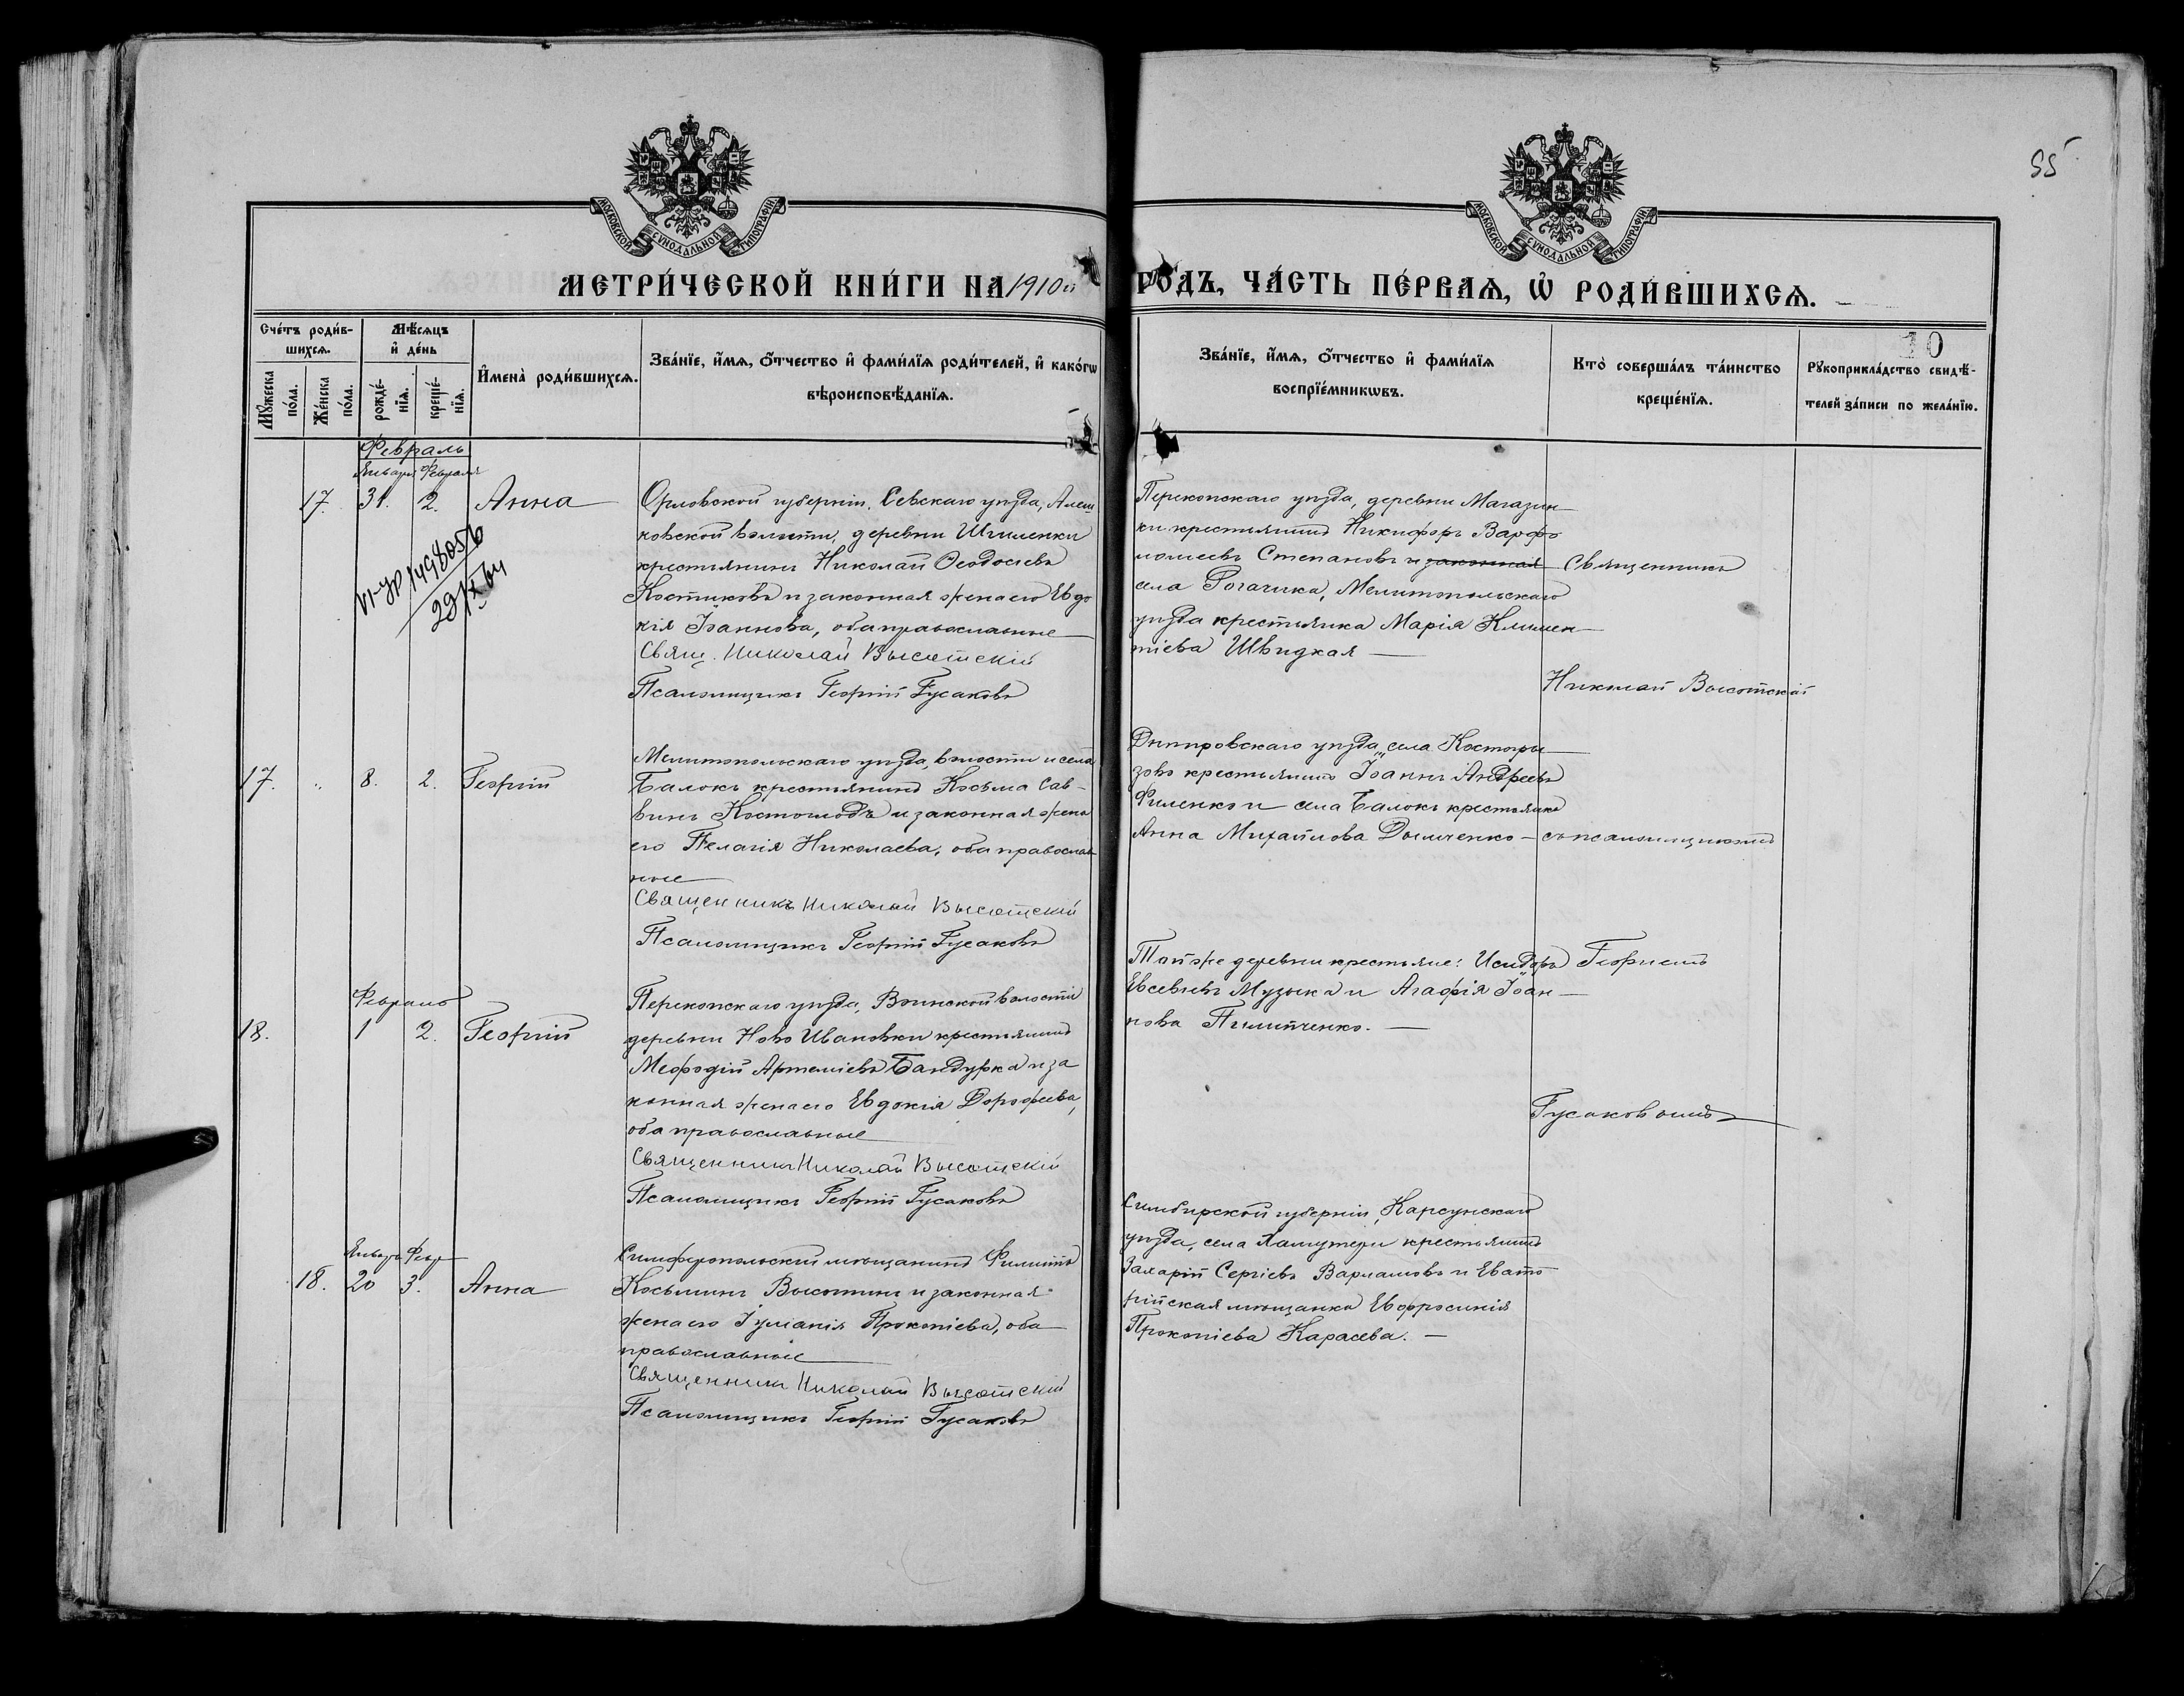 55
МОСКОВСКОЙ СУНОДАЛЬНОЙ ТИПОГРАФІИ
МОСКОВСКОЙ СУНОДАЛЬНОЙ ТИПОГРАФІИ
МЕТРИ́ЧЕСКОЙ КНИ́ГИ НА 1910й ГОДЪ, ЧА́СТЬ ПЕ́РВАѦ, Ѡ҆ РОДИ́ВШИХСѦ.
10
Сче́тъ роди́в-
шихсѧ.
Мѹ́жеска по́ла.
Же́нска по́ла.
Мѣ́сѧцъ
и҆ де́нь
рожде́-
нїѧ.
креще́-
нїѧ.
И҆мена̀ роди́вшихсѧ.
Зва́нїе, и҆́мѧ, ѻ҆́тчество и҆ фами́лїѧ роди́телей, и҆ како́гѡ
вѣроисповѣ́данїѧ.
Зва́нїе, и҆́мѧ, ѻ҆́тчество и҆ фами́лїѧ
воспрїе́мникѡвъ.
Кто̀ соверша́лъ та́инство
креще́нїѧ.
Рѹкоприкла́дство свидѣ́-
телей за́писи по жела́нїю.
Февраль
Января Февраля
17. 31. 2. Анна
Орловской губерніи, Севскаго уѣзда, Алеш
ковской волости, деревни Шиленки
крестьянинъ Николай Ѳеодосіевъ
Костиковъ и законная жена его Евдо
кія Іоаннова, оба православные
Свящ. Николай Высотскій
Псаломщикъ Георгій Гусаковъ
Перекопскаго уѣзда, деревни Магазин-
ки крестьянинъ Никифоръ Варфо
ломеевъ Степановъ и законная
села Рогачика, Мелитопольскаго
уѣзда крестьянка Марія Климен-
тіева Швидкая
Священникъ
Николай Высотскій
29/IX 64
17. " 8. 2. Георгій
Мелитопольскаго уѣзда, волости и села
Балокъ крестьянинъ Косьма Сав-
винъ Костоглодъ и законная жена
его Пелагія Николаева, оба православ
ные
Священникъ Николай Высотскій
Псаломщикъ Георгій Гусаковъ
Днѣпровскаго уѣзда, села Костогры-
зово крестьянинъ Іоаннъ Андреевъ
Филенко и села Балокъ крестьянка
Анна Михайлова Дымченко
съ псаломщикомъ
Февраль
18. 1 2. Георгій
Перекопскаго уѣзда, Воинской волости
деревни Ново Ивановки крестьянинъ
Меѳодій Артеміевъ Бандурка и за
конная жена его Евдокія Дороѳеева,
оба православные
Священникъ Николай Высотскій
Псаломщикъ Георгій Гусаковъ
Той же деревни крестьяне: Исидоръ
Евсевіевъ Музыка и Агафія Іоан-
нова Пилипченко.
Георгіемъ
Гусаковымъ
Январь Февр
18. 20 3. Анна
Симферопольскій мѣщанинъ Филиппъ
Косьминъ Высотинъ и законная
жена его Іуліанія Прокопіева, оба
православные
Священникъ Николай Высотскій
Псаломщикъ Георгій Гусаковъ
Симбирской губерніи, Карсунскаго
уѣзда, села крестьянинъ
Захарій Сергіевъ Варламовъ и Евпато
рійская мѣщанка Евфросинія
Прокопіева Карасева.